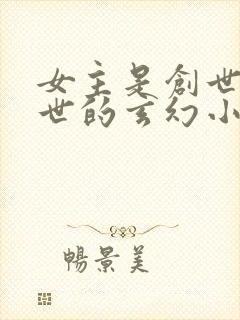 女主是創世
世的玄幻小
暢景美